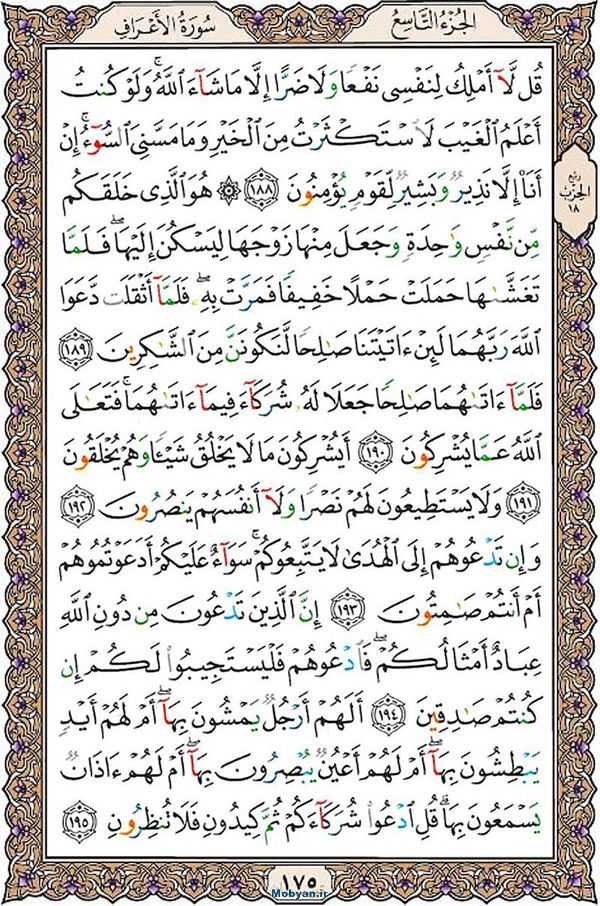 الجُزْءُ التَّاسِعُ
سُورَةُ الأَعْرَافِ
قُل لَّآ أَمْلِكُ لِنَفْسِى نَفْعًا وَلَا ضَرًّا إِلَّا مَا شَآءَ ٱللَّهُ ۚ وَلَوْ كُنتُ
أَعْلَمُ ٱلْغَيْبَ لَٱسْتَكْثَرْتُ مِنَ ٱلْخَيْرِ وَمَا مَسَّنِىَ ٱلسُّوٓءُ ۚ إِنْ
أَنَا۠ إِلَّا نَذِيرٌ وَبَشِيرٌ لِّقَوْمٍ يُؤْمِنُونَ ١٨٨ ۞ هُوَ ٱلَّذِى خَلَقَكُم
مِّن نَّفْسٍ وَٰحِدَةٍ وَجَعَلَ مِنْهَا زَوْجَهَا لِيَسْكُنَ إِلَيْهَا ۖ فَلَمَّا
تَغَشَّىٰهَا حَمَلَتْ حَمْلًا خَفِيفًا فَمَرَّتْ بِهِۦ ۖ فَلَمَّآ أَثْقَلَت دَّعَوَا
ٱللَّهَ رَبَّهُمَا لَئِنْ ءَاتَيْتَنَا صَٰلِحًا لَّنَكُونَنَّ مِنَ ٱلشَّٰكِرِينَ ١٨٩
فَلَمَّآ ءَاتَىٰهُمَا صَٰلِحًا جَعَلَا لَهُۥ شُرَكَآءَ فِيمَآ ءَاتَىٰهُمَا ۚ فَتَعَٰلَى
ٱللَّهُ عَمَّا يُشْرِكُونَ ١٩٠ أَيُشْرِكُونَ مَا لَا يَخْلُقُ شَيْـًٔا وَهُمْ يُخْلَقُونَ
١٩١ وَلَا يَسْتَطِيعُونَ لَهُمْ نَصْرًا وَلَآ أَنفُسَهُمْ يَنصُرُونَ ١٩٢
وَإِن تَدْعُوهُمْ إِلَى ٱلْهُدَىٰ لَا يَتَّبِعُوكُمْ ۚ سَوَآءٌ عَلَيْكُمْ أَدَعَوْتُمُوهُمْ
أَمْ أَنتُمْ صَٰمِتُونَ ١٩٣ إِنَّ ٱلَّذِينَ تَدْعُونَ مِن دُونِ ٱللَّهِ
عِبَادٌ أَمْثَالُكُمْ ۖ فَٱدْعُوهُمْ فَلْيَسْتَجِيبُوا۟ لَكُمْ إِن
كُنتُمْ صَٰدِقِينَ ١٩٤ أَلَهُمْ أَرْجُلٌ يَمْشُونَ بِهَآ ۖ أَمْ لَهُمْ أَيْدٍ
يَبْطِشُونَ بِهَآ ۖ أَمْ لَهُمْ أَعْيُنٌ يُبْصِرُونَ بِهَآ ۖ أَمْ لَهُمْ ءَاذَانٌ
يَسْمَعُونَ بِهَا ۗ قُلِ ٱدْعُوا۟ شُرَكَآءَكُمْ ثُمَّ كِيدُونِ فَلَا تُنظِرُونِ ١٩٥
ربع
الحزب
١٨
١٧٥
Mobyan.ir